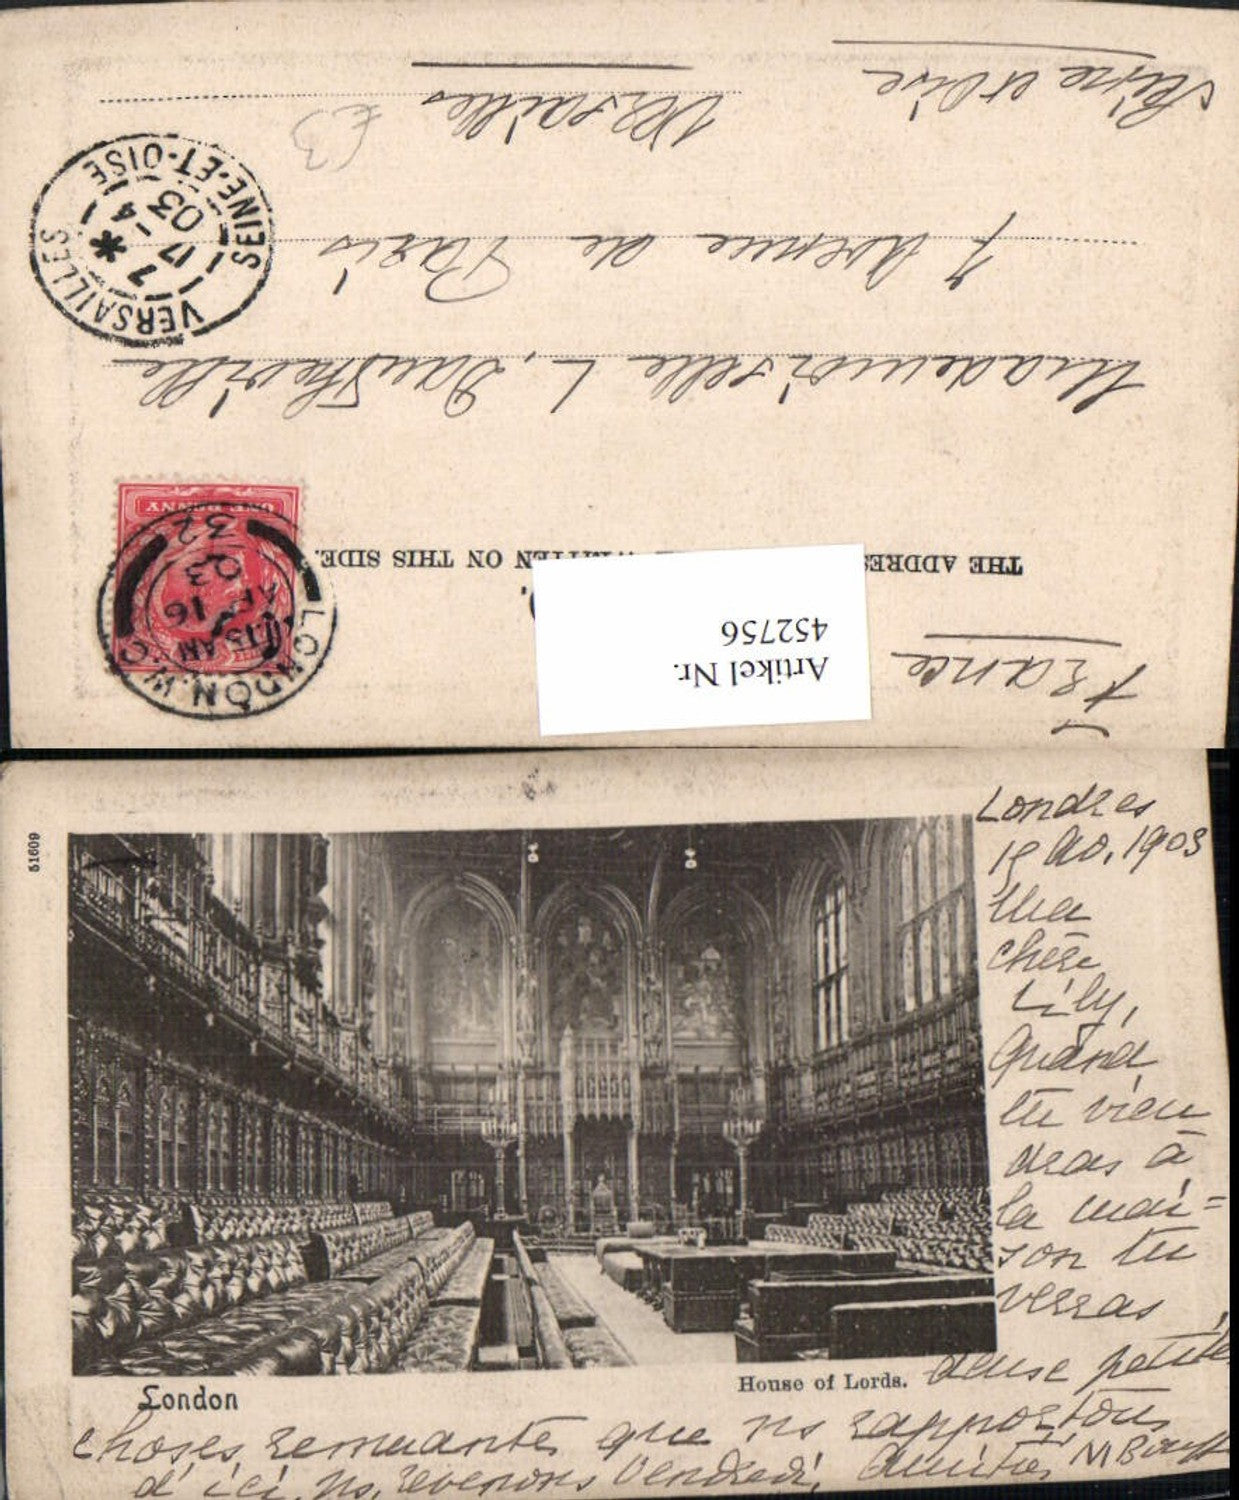 France
Artikel Nr.
452756
THE ADDRES WRITTEN ON THIS SIDE.
LONDON.W.C
15 AM
AP 16
03
32
ONE PENNY
Mademoiselle L.
7 Avenue de Paris
Versailles
Seine et Oise
£3
VERSAILLES
7 *
17 - 4
03
SEINE-ET-OISE
51609
London
House of Lords.
Londres
1903
Ma
chère
Lily,
Quand
tu vien
dras à
la mai=
son tu
verras
deuse petites
choses remuantes que ns rapportons
d'ici, ns revenons Vendredi, Amitiés